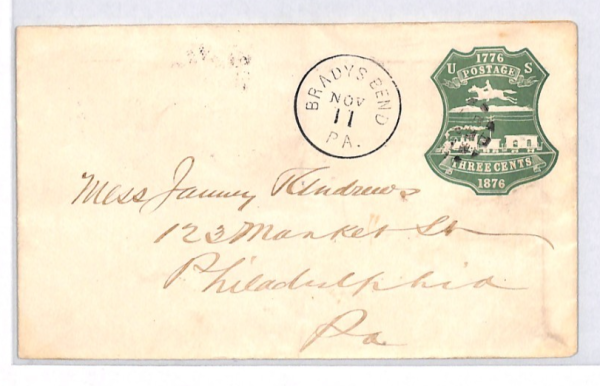 BRADYS BEND
NOV
11
PA.
1776
U S
POSTAGE
THREE CENTS
1876
Mess Janney & Andrews
123 Market St
Philadelphia
Pa